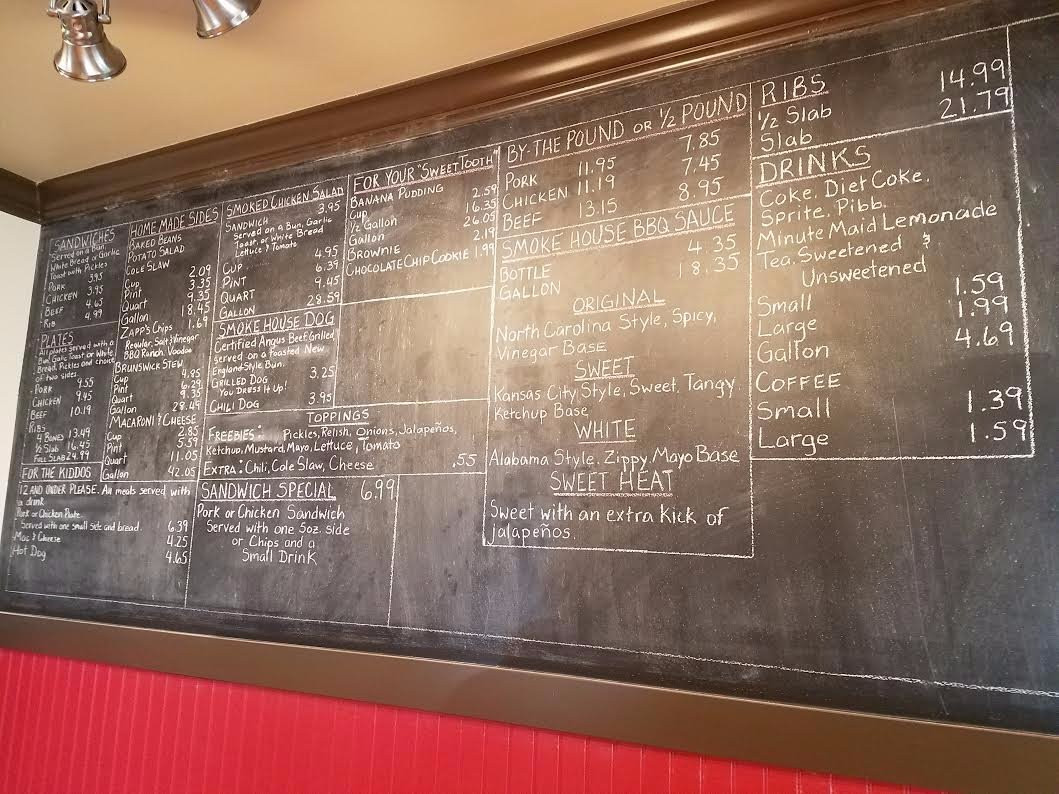 SANDWICHES
Served on a Bun,
White Bread or Garlic
Toast with Pickles
PORK 3.95
CHICKEN 3.95
BEEF 4.65
RIB 4.99
PLATES
All plates served with a
Bun, Garlic Toast or White
Bread, Pickles and choice
of two sides.
PORK 9.55
CHICKEN 9.45
BEEF 10.19
RIBS
4 BONES 13.49
1/2 SLAB 16.45
FULL SLAB 24.99
FOR THE KIDDOS
12 AND UNDER PLEASE. All meals served with
a drink
Pork or Chicken Plate
Served with one small side and bread. 6.39
Mac & Cheese 4.25
Hot Dog 4.65
HOME MADE SIDES
BAKED BEANS
POTATO SALAD
COLE SLAW
Cup 2.09
Pint 3.35
Quart 9.35
Gallon 18.45
ZAPP'S CHIPS 1.69
Regular, Salt & Vinegar
BBQ, Ranch, Voodoo
BRUNSWICK STEW
Cup 4.85
Pint 6.29
Quart 9.35
Gallon 28.49
MACARONI & CHEESE
Cup 2.85
Pint 5.59
Quart 11.05
Gallon 42.05
SMOKED CHICKEN SALAD
SANDWICH 3.95
Served on a Bun, Garlic
Toast, or White Bread
Lettuce & Tomato
CUP 4.95
PINT 6.39
QUART 9.45
GALLON 28.59
SMOKE HOUSE DOG
Certified Angus Beef Grilled
served on a Toasted New
England Style Bun.
GRILLED DOG 3.25
You Dress It Up!
CHILI DOG 3.95
TOPPINGS
FREEBIES: Pickles, Relish, Onions, Jalapeños,
Ketchup, Mustard, Mayo, Lettuce, Tomato
EXTRA: Chili, Cole Slaw, Cheese .55
SANDWICH SPECIAL 6.99
Pork or Chicken Sandwich
Served with one 5oz. side
or Chips and a
Small Drink
FOR YOUR "SWEET TOOTH"
BANANA PUDDING
Cup 2.59
1/2 Gallon 16.35
Gallon 26.05
BROWNIE 2.19
CHOCOLATE CHIP COOKIE 1.99
BY-THE POUND OR 1/2 POUND
PORK 11.95 7.85
CHICKEN 11.19 7.45
BEEF 13.15 8.95
SMOKE HOUSE BBQ SAUCE
BOTTLE 4.35
GALLON 18.35
ORIGINAL
North Carolina Style, Spicy,
Vinegar Base
SWEET
Kansas City Style, Sweet, Tangy
Ketchup Base
WHITE
Alabama Style, Zippy, Mayo Base
SWEET HEAT
Sweet with an extra Kick of
jalapeños.
RIBS
1/2 Slab 14.99
Slab 21.79
DRINKS
Coke, Diet Coke,
Sprite, Pibb,
Minute Maid Lemonade
Tea, Sweetened &
Unsweetened
Small 1.59
Large 1.99
Gallon 4.69
COFFEE
Small 1.39
Large 1.59